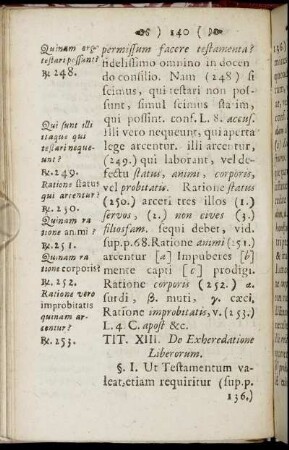 ) 140 (
Quinam ergo
testari possunt?
℞. 248.
Qui sunt illi
itaque qui
testari neque-
unt?
℞. 249.
Ratione status
qui arcentur?
℞. 250.
Quinam ra
tione animi?
℞. 251.
Quinam ra
tione corporis?
℞. 252.
Ratione vero
improbitatis
quinam ar-
centur?
℞. 253.
permissum facere testamenta?
fidelissimo omnino in docen
do consilio. Nam (248) si
scimus, qui testari non pos-
sunt, simul scimus statim,
qui possint. conf. L. 8. accus.
Illi vero nequeunt, qui aperta
lege arcentur. illi arcentur,
(249.) qui laborant, vel de-
fectu status, animi, corporis,
vel probitatis. Ratione status
(250.) arceri tres illos (1.)
servos, (2.) non cives (3.)
filiosfam. sequi debet, vid.
sup. p. 68. Ratione animi (251.)
arcentur [a] Impuberes [b]
mente capti [c] prodigi.
Ratione corporis (252.) α.
surdi, β. muti, γ. cæci,
Ratione improbitatis, v. (253.)
L. 4 C. apost &c.
TIT. XIII. De Exheredatione
Liberorum.
§. I. Ut Testamentum va-
leat, etiam requiritur (sup. p.
136.)